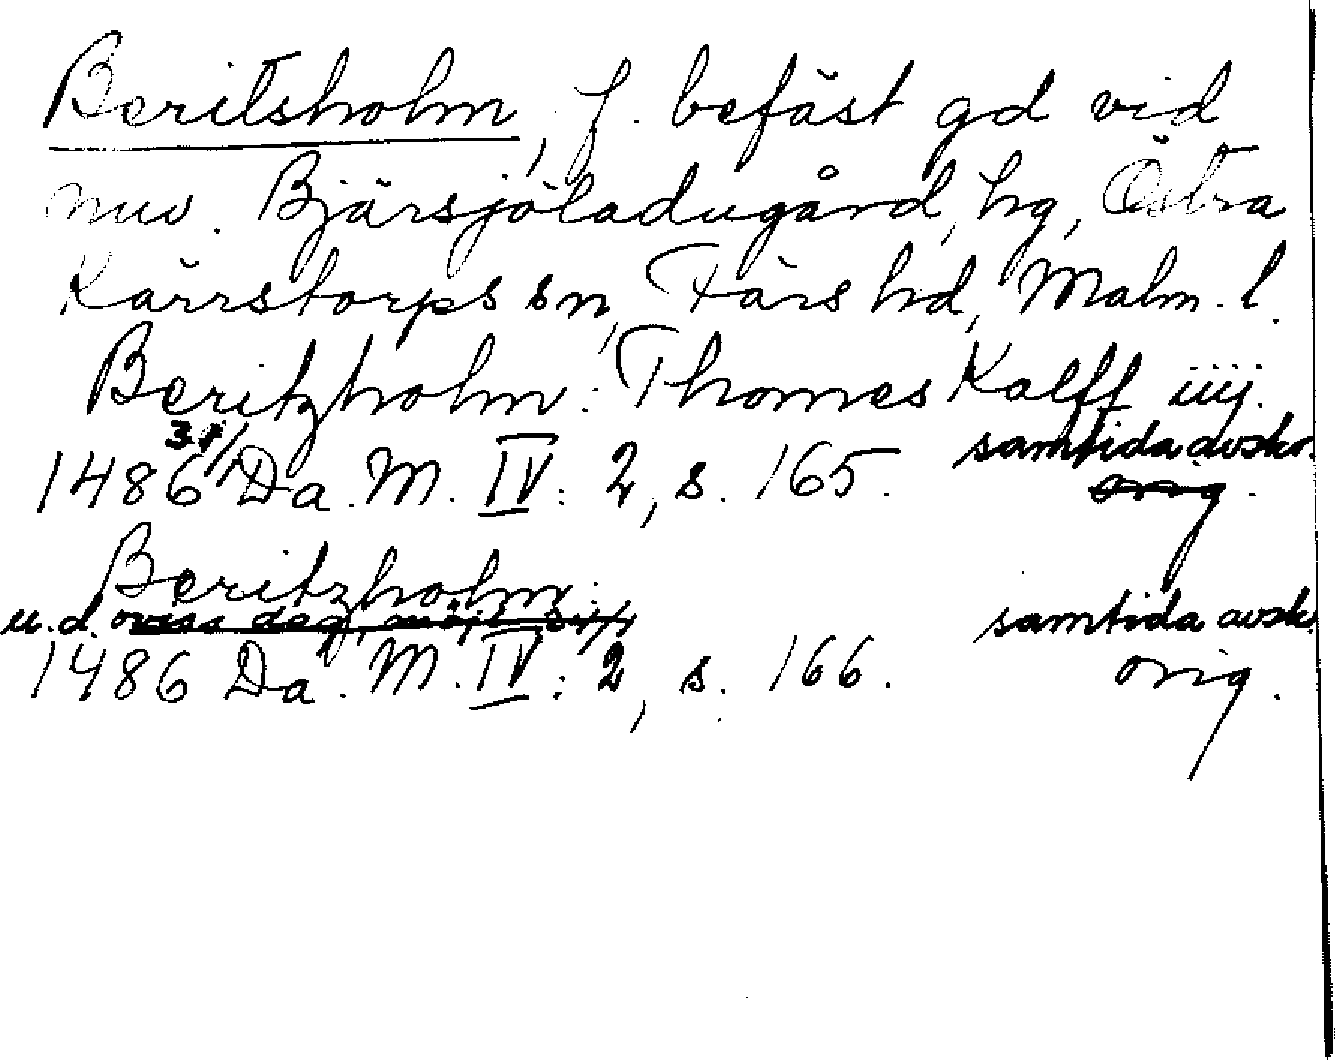 Beritsholm, f. befäst gd vid
nuv. Bjärsjöladugård, hg, Östra
Kärrstorps sn, Färs hd, Malm. l.
Beritzholm: Thomes Kalff iiij.
31/1 samtida avskr.
1486 Da. M. IV: 2, s. 165 orig.
Beritzholm:
u. d. oviss dag, möjl. 31/1 samtida avskr.
1486 Da. M. IV: 2, s. 166. orig.